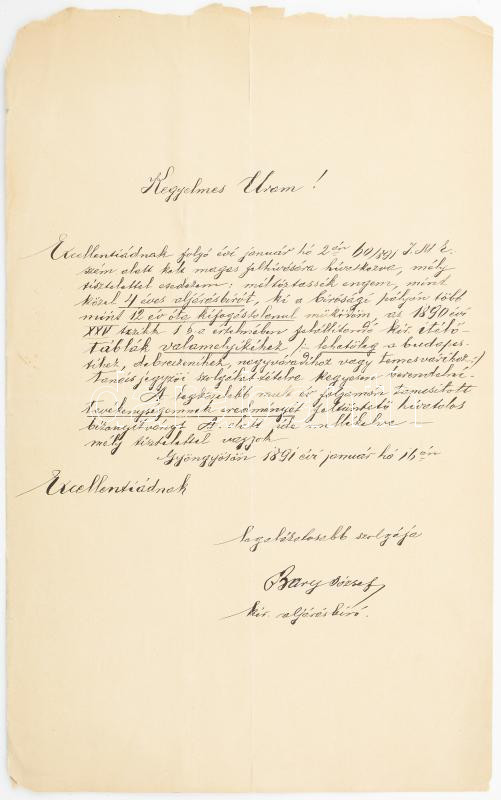 Kegyelmes Uram!
Excellentiádnak folyó évi január hó 2án 60/891 I. M. E.
szám alatt kelt magas felhivására hivatkozva, mély
tisztelettel esedezem: méltóztassék engem, mint
közel 4 éves aljárásbirót, ki a birósági pályán több
mint 12 év óta kifogástalanul működöm, az 1890 évi
XXV tczikk értelmében felállitandó kir. itélő-
táblák valamelyikéhez /: lehetőleg a budapes-
tihez, debreczenihez, nagyváradihoz vagy temesvárihoz :/
tanácsjegyzői szolgálattételre kegyesen berendelni.
A legközelebb mult év folyamán tanusitott
tevékenységemnek eredményét feltüntető hivatalos
bizonyitványt A. alatt ide mellékelve —
mély tisztelettel vagyok
Gyöngyösön 1891 évi január hó 16án
Excellentiádnak
legalázatosabb szolgája
Bary József
kir. aljárásbiró.